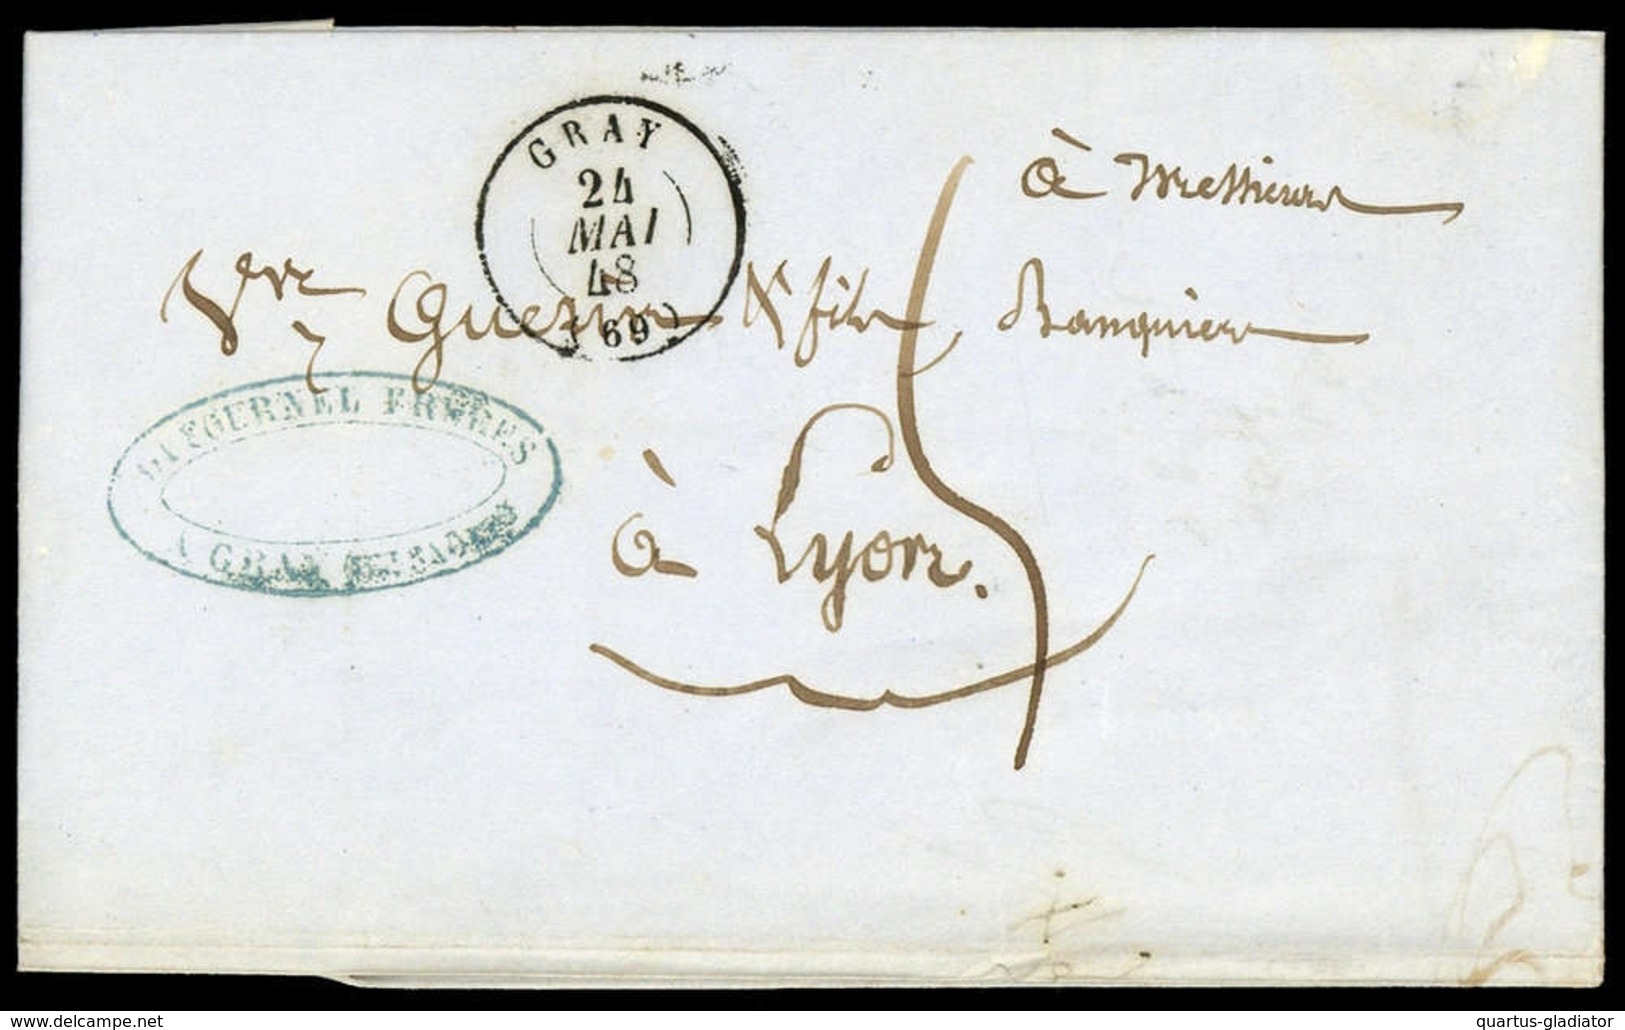 GRAY
24
MAI
48
(69)
à Messieurs
Vve Guerin & fils, Banquiers
FRERES
A GRAY
à Lyon.
www.delcampe.net
quartus-gladiator